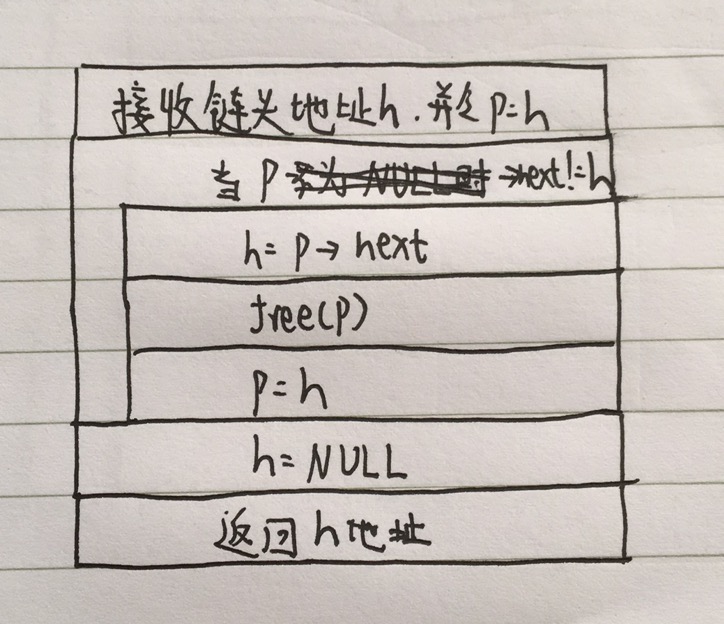 接收链头地址h.并令p=h
当 p→next!=h
h=p→next
free(p)
p=h
h=NULL
返回h地址